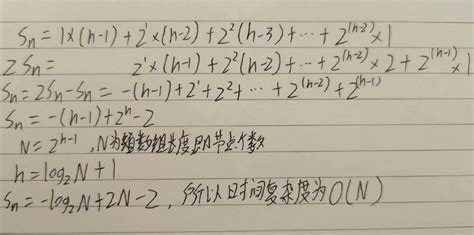 Sn = 1×(h-1) + 2^1×(h-2) + 2^2(h-3) + ⋯ + 2^(h-2)×1
2Sn = 2^1×(h-1) + 2^2(h-2) + ⋯ + 2^(h-2)×2 + 2^(h-1)×1
Sn = 2Sn - Sn = -(h-1) + 2^1 + 2^2 + ⋯ + 2^(h-2) + 2^(h-1)
Sn = -(h-1) + 2^h - 2
N = 2^(h-1) , N为数组长度即节点个数
h = log₂N + 1
Sn = -log₂N + 2N - 2 , 所以时间复杂度为O(N)